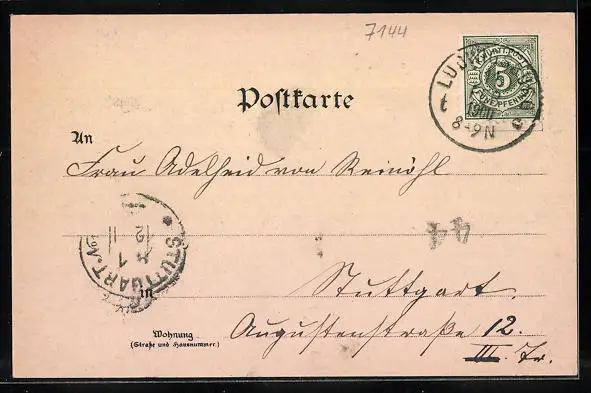 7144
5
8-9N
Postkarte
An
Frau Adelheid von Reinöhl
44
STUTTGART
1
in Stuttgart.
Wohnung
(Straße und Hausnummer.)
Augustenstraße 12.
III. Tr.